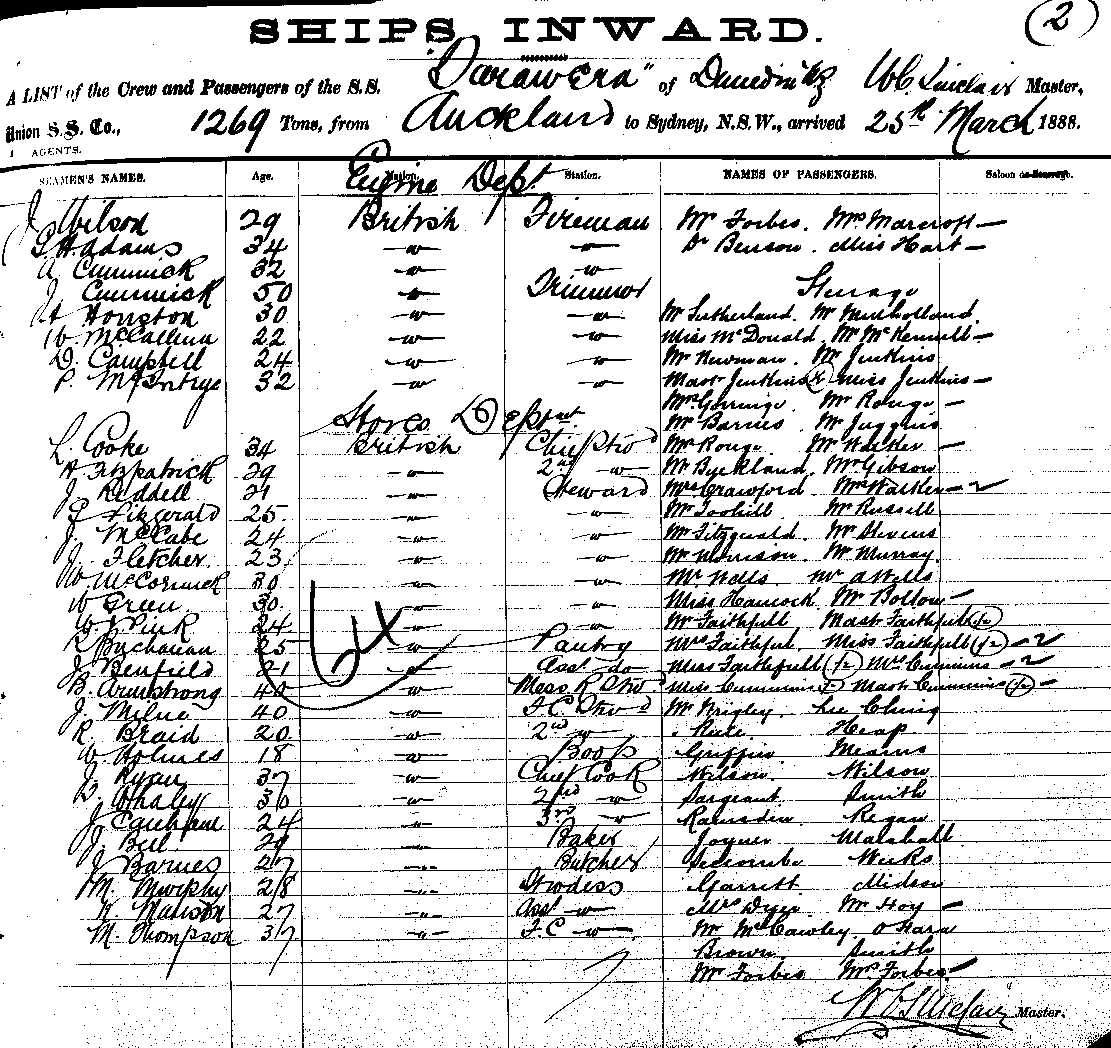 (2)
SHIPS INWARD.
A LIST of the Crew and Passengers of the S.S. "Tarawera" of Dunedin NZ W C Sinclair Master,
Union S.S. Co., 1269 Tons, from Auckland to Sydney, N.S.W., arrived 25th March 1888.
AGENTS.
SEAMEN'S NAMES. Age. Station. NAMES OF PASSENGERS. Saloon or Steerage.
Engine Dept
J Wilson 29 British Fireman Mr Forbes. Mrs Marcroft —
G H. Adams 34 —"— —"— Dr Benson. Miss Hart —
A Cummick 32 —"— —"—
J Cummick 50 —"— Trimmer Steerage
H Houston 30 —"— —"— Mr Sutherland. Mr Mulholland.
W. McCallum 22 —"— —"— Miss McDonald. Mr —
D. Campbell 24 —"— —"— Mr Newman. Mr Jenkins
P. McIntyre 32 —"— —"— Mast Jenkins Miss Jenkins —
Mr Rouge —
Stores Dept Mr Barnes Mr Juggins
L. Cooke 34 British Chief Stwd Mr Rouge Mr Walker —
H Fitzpatrick 29 —"— 2nd —"— Mr Buckland. Mr Gibson
J Riddell 21 —"— Steward Mrs Crawford Mrs Walker —
J Fitzgerald 25 —"— —"— Mr Toohill Mr Russell
J. McCabe 24 —"— —"— Mr Fitzgerald. Mr Stevens
J. Fletcher 23 —"— —"— Mr Morrison Mr Murray.
W McCormick 30 —"— —"— Mr Wells Mr A Wells
W Green 30 —"— —"— Miss Hancock Mr Bolton —
24 —"— —"— Mr Faithfull, Mast Faithfull (½)
R Buchanan 25 —"— Pantry Mrs Faithful, Miss Faithfull (½) —
J Benfield 21 —"— Asst do Miss Faithfull (½) Mrs Cummins —
B. Armstrong 40 —"— Mess R Stwd Miss Cummins Mast Cummins (½) —
J. Milne 40 —"— F.C. Stwd Mr Wrigley. Lee Ching
R Braid 20 —"— 2nd —"— Heap
W Holmes 18 —"— Boop Griffin Mearns
J. Ryan 37 —"— Chief Cook Wilson. Wilson
Whaley 30 —"— 2nd —"— Sargeant Smith
J. 24 —"— 3rd —"— Ramsden Regan
J. Bell 29 —"— Baker Joyner Marshall
J Barnes 27 —"— Butcher Seccombe Weeks
M. Murphy 28 —"— Stwdess Garrett Midson
27 —"— Asst —"— Mrs Dyer Mr Hoy —
M. Thompson 37 —"— F.C —"— Mr McCawley O'Hara
Brown. Smith
Mr Forbes Mrs Forbes —
W C Sinclair Master.